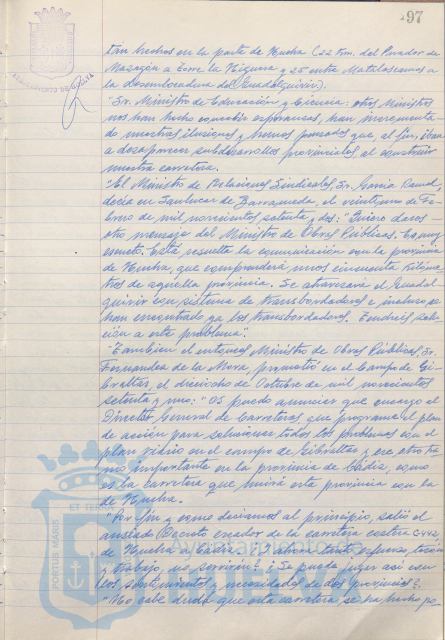 197
tán hechos en la parte de Huelva (22 Km. del Parador de
Mazagón a Torre la Higuera y 25 entre Matalascañas a
la desembocadura del Guadalquivir).
"Sr. Ministro de Educación y Ciencia: otros Ministros
nos han hecho concebir esperanzas, han incrementa-
do nuestras ilusiones y hemos pensado que, al fin, iban
a desaparecer subdesarrollos provinciales al construir
nuestra carretera.
"El Ministro de Relaciones Sindicales, Sr. García Ramal
decía en Sanlucar de Barrameda, el veintiuno de Fe-
brero de mil novecientos setenta y dos: "Quiero daros
otro mensaje del Ministro de Obras Públicas. Es muy
concreto. Está resuelta la comunicación con la provincia
de Huelva, que comprenderá unos cincuenta kilóme-
tros de aquella provincia. Se atravesará el Guadal-
quivir con sistema de transbordadores e incluso se
han encontrado ya los transbordadores. Tendréis solu-
ción a este problema".
"También el entonces Ministro de Obras Públicas, Sr.
Fernandez de la Mora, prometió en el Campo de Gi-
braltar, el dieciocho de Octubre de mil novecientos
setenta y uno: "Os puedo anunciar que encargo al
Director General de Carreteras que programe el plan
de acción para solucionar todos los problemas con el
plan viario en el campo de Gibraltar y ese otro tra-
mo importante en la provincia de Cádiz, como
es la carretera que unirá esta provincia con la
de Huelva.
"Por fin y como decíamos al principio, salió el
ansiado Decreto creador de la carretera costera C-442,
de Huelva a Cádiz. ¿Y ahora tanto esfuerzo, tesón
y trabajo, no servirán? ¿Se puede jugar así con
los sentimientos y necesidades de dos provincias?.
"No cabe duda que esta carretera se ha hecho po-
AYUNTAMIENTO DE HUELVA
PORTUS MARIS ET TERRAE
Ayuntamiento de
HUELVA